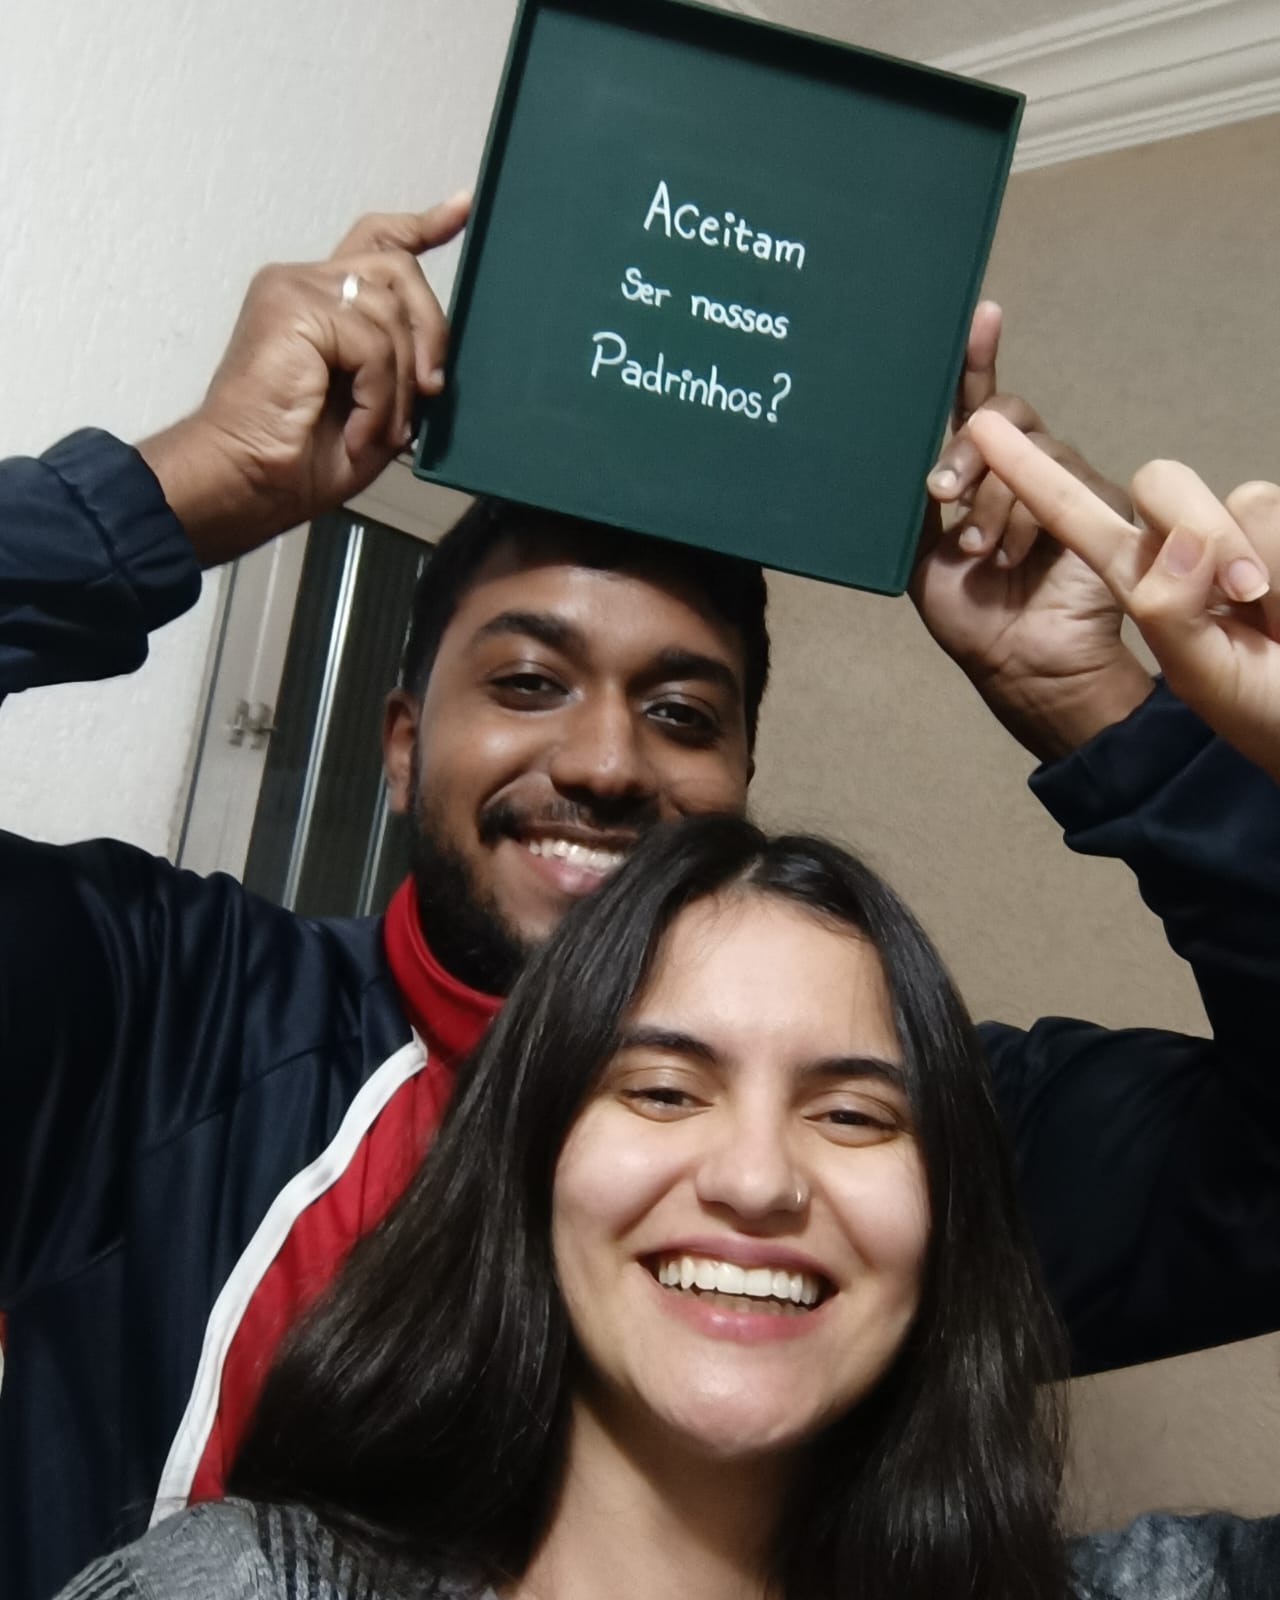 Aceitam
Ser nossos
Padrinhos?